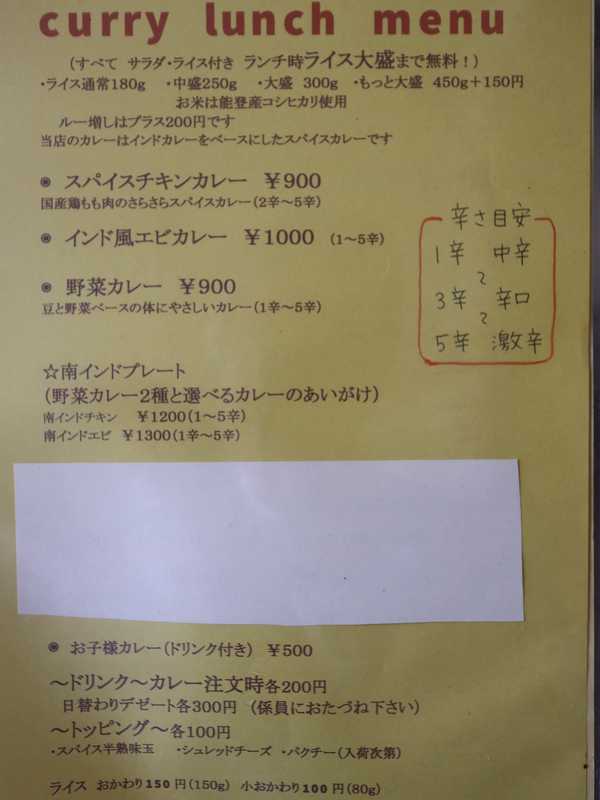 curry lunch menu
(すべて サラダ・ライス付き ランチ時ライス大盛まで無料！)
・ライス通常180g ・中盛250g ・大盛 300g ・もっと大盛 450g＋150円
お米は能登産コシヒカリ使用
ルー増しはプラス200円です
当店のカレーはインドカレーをベースにしたスパイスカレーです
◉ スパイスチキンカレー ￥900
国産鶏もも肉のさらさらスパイスカレー(2辛～5辛)
◉ インド風エビカレー ￥1000 (1～5辛)
◉ 野菜カレー ￥900
豆と野菜ベースの体にやさしいカレー(1辛～5辛)
辛さ目安
1辛 中辛
～
3辛 辛口
～
5辛 激辛
☆南インドプレート
(野菜カレー2種と選べるカレーのあいがけ)
南インドチキン ￥1200(1～5辛)
南インドエビ ￥1300(1辛～5辛)
◉ お子様カレー(ドリンク付き) ￥500
～ドリンク～カレー注文時各200円
日替わりデゼート各300円 (係員におたづね下さい)
～トッピング～各100円
・スパイス半熟味玉 ・シュレッドチーズ ・パクチー(入荷次第)
ライス おかわり150円(150g) 小おかわり100円(80g)